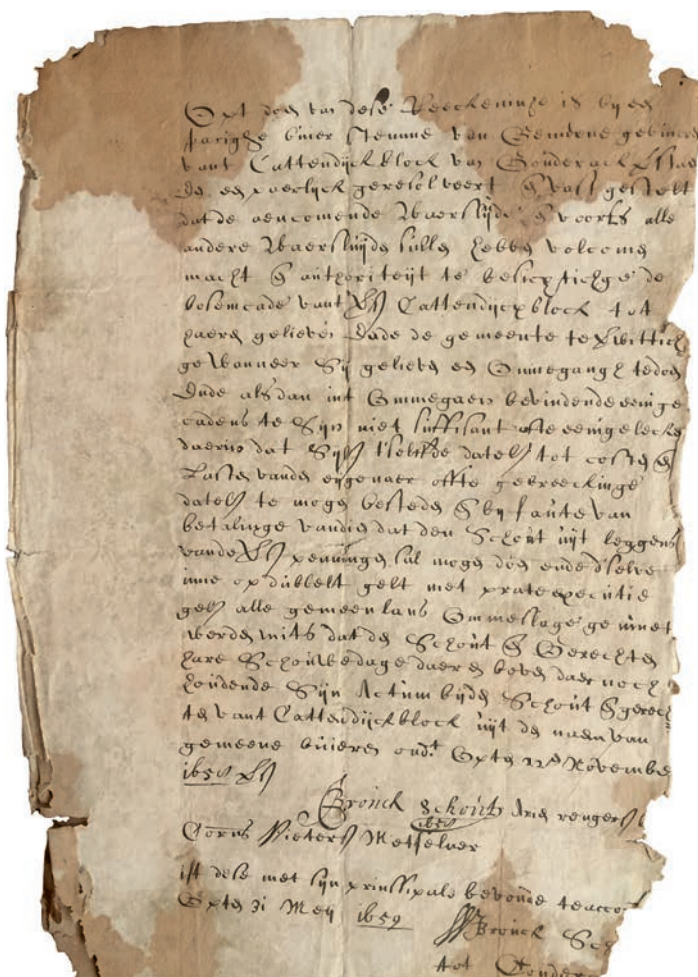 Opt doen van dese Reeckeninge is by een
parighe buier stemme van Gemeene gebuiren
vant Cattendijckblock van Gouderack
ende eenpaerlijck geresolveert & vast gestelt
dat de aencomende Waerslijde & voorts alle
andere Waersluijde sullen hebben volcomen
macht & authoriteijt te besichtichge de
boesemcade vant Cattendijckblock tot
haeren gelieven Ende de gemeente te
ge Wanneer Sij gelieven een Ommegangh te doen
Ende als dan int Ommegaen bevindende eenige
cadens te Sijn niet suffisant ofte eenige lecken
daerin dat Sijl t'selfde datelijck tot costen &
Laste vande eijgenaer offte gebreeckinge
datelijck te mogen besteden & by faute van
betalinge van dien dat den Schout uijt leggens
vande penningen sal mogen doen ende d'selve
inne op dubbelt gelt met prate executie
alle gemeenlans Ommeslage geinnet
werden mits dat de Schout & Gerechten
hare Schouwedage daeren boven daer noch
houdende Sijn Actum bijde Schout & gerech
ten vant Cattendijckblock uijt de naem van
gemeene buieren ond.t Opten November
1658
Bronck Schout Arien
1658
Corns Pieters Metselaer
ist dese met sijn prinssipale bevonde te accor
Opten 31 Meij 1659
Bronck Sch
tot Gouder